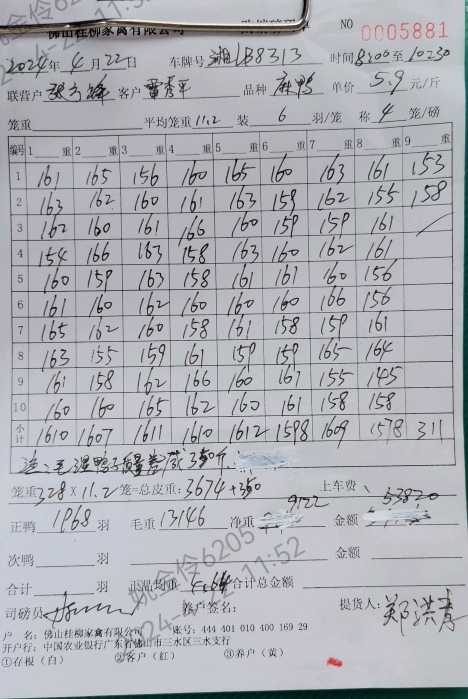 佛山桂柳家禽有限公司
NO 0005881
2024年4月22日 车牌号 湘LB8313 时间8:00至10:30
联营户 客户 雷秀平 品种 麻鸭 单价 5.9 元/斤
笼重 平均笼重 11.2 装 6 羽/笼 称 4 笼/磅
编号 1 重 2 重 3 重 4 重 5 重 6 重 7 重 8 重 9 重
1 161 165 156 160 165 160 163 161 153
2 163 162 160 161 163 159 162 155 158
3 162 160 161 166 160 159 159 161
4 154 166 163 158 163 160 162 161
5 160 159 163 158 161 161 160 156
6 161 160 162 160 160 160 166 156
7 165 162 160 158 161 158 159 161
8 163 155 159 161 159 159 165 164
9 161 158 162 166 160 161 155 145
10 160 160 165 162 160 161 158 158
小计 1610 1607 1611 1610 1612 1598 1609 1578 311
毛湿鸭子质量差减350斤
笼重 328 × 11.2 笼=总皮重: 3674+350 上车费
正鸭 1968 羽 毛重 13146 净重 9122 金额 53820
次鸭 羽 金额
合计 羽 正品均重 4.64 合计总金额
司磅员 客户签名: 提货人: 郑洪青
户 名: 佛山桂柳家禽有限公司 账号: 444 401 010 400 169 29
开户行: 中国农业银行广东省佛山市三水区三水支行
①存根(白) ②客户(红) ③养户(黄)
姚金伶6205
2024-04-22 11:52